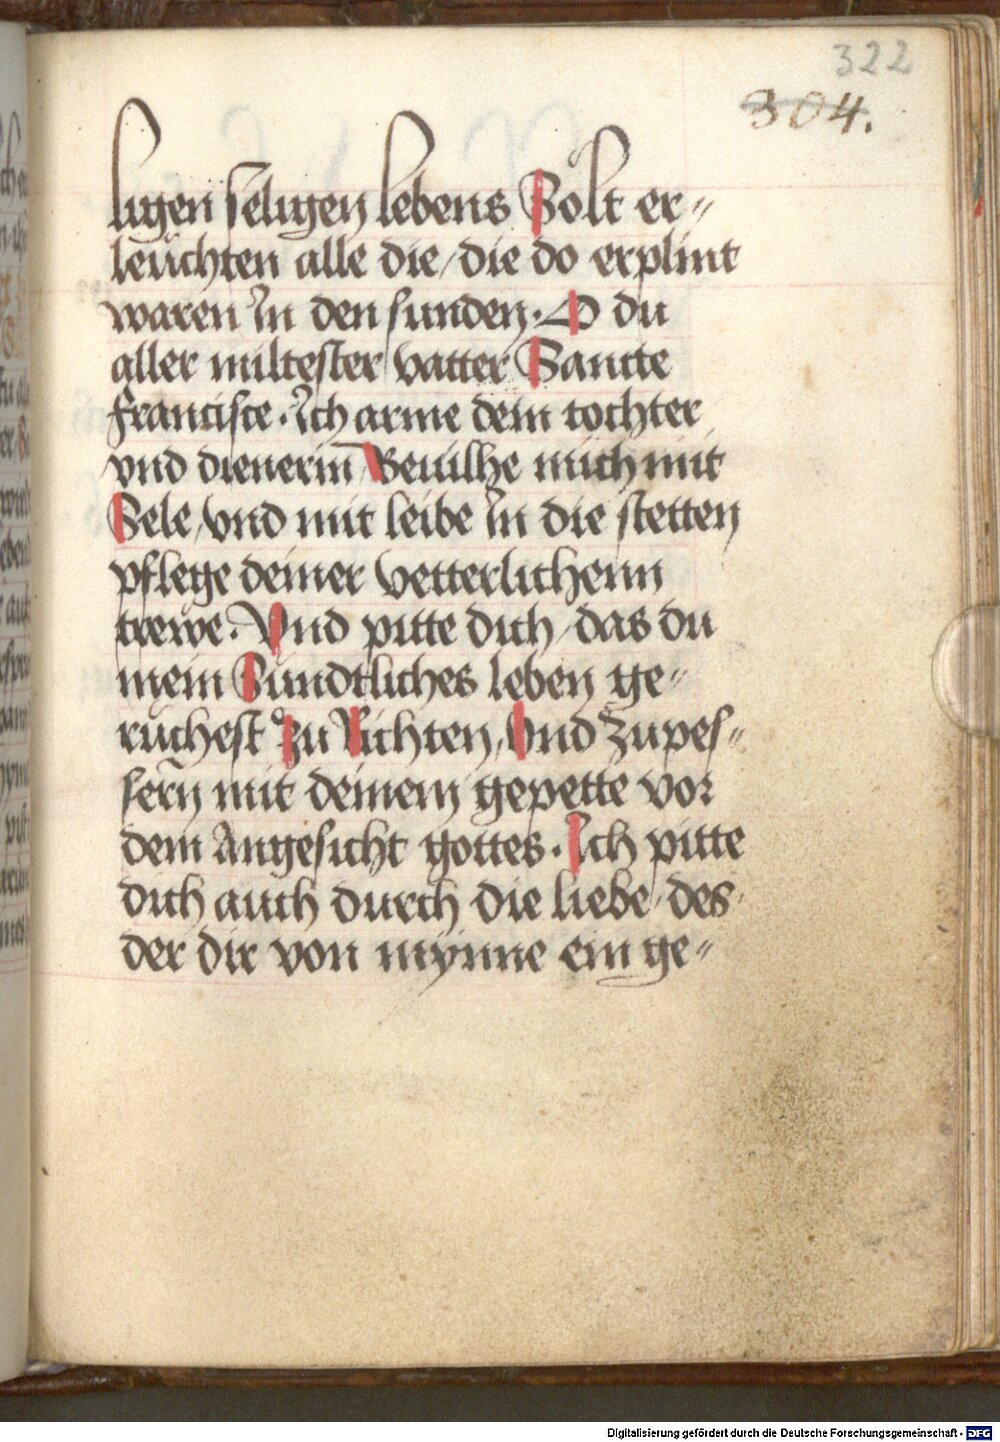 322
304.
ligen seligen lebens Solt er-
leuchten alle die / die do erplint
waren In den sunden. O du
aller miltester vatter Sancte
francisce. Ich arme dein tochter
vnd dienerin Beuilhe mich mit
Sele / vnd mit leibe In die stetten
pflege deiner vetterlichenn
trewe. Vnd pitte dich / das du
mein Sundtliches leben ge-
ruchest Zu Richten / Vnd Zu pes-
sern mit deinem gepette vor
dem Angesicht gottes. Ich pitte
dich auch durch die liebe / des
der dir von mynne ein ge-
Digitalisierung gefördert durch die Deutsche Forschungsgemeinschaft - DFG